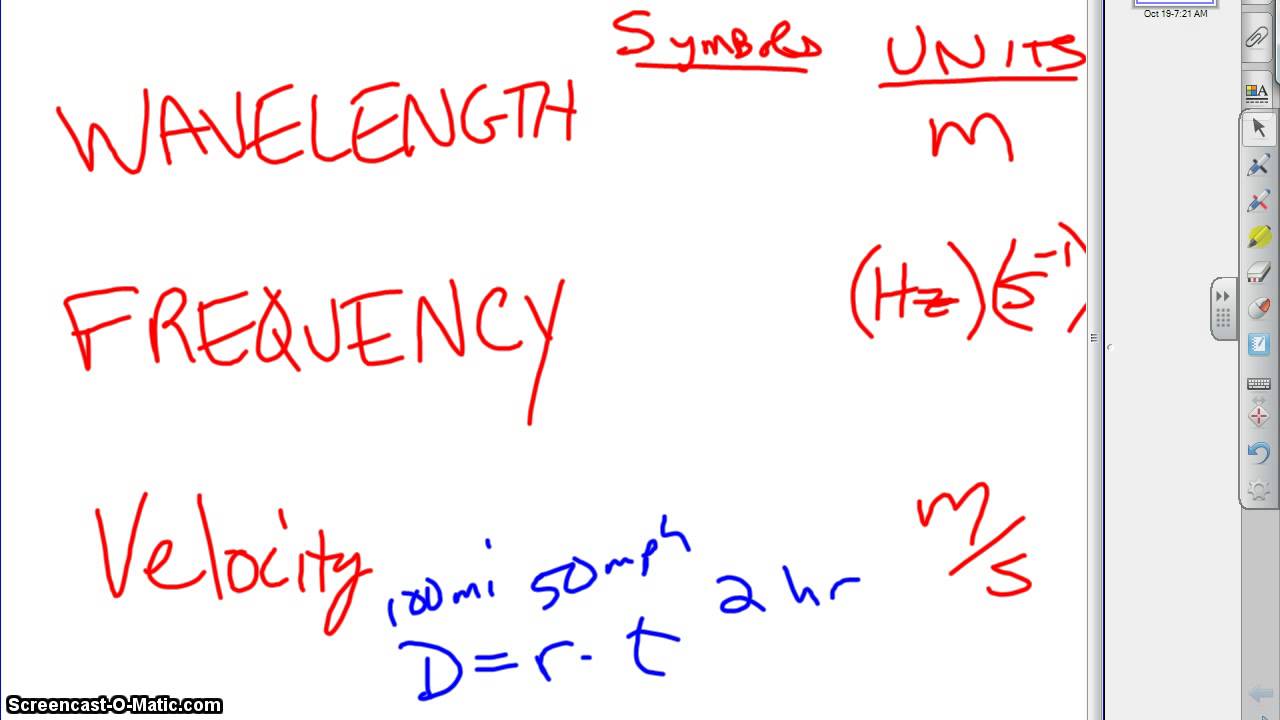 Oct 19-7:21 AM
Symbols UNITS
WAVELENGTH m
FREQUENCY (Hz)(s⁻¹)
Velocity m/s
100mi 50mph 2 hr
D=r· t
Screencast-O-Matic.com